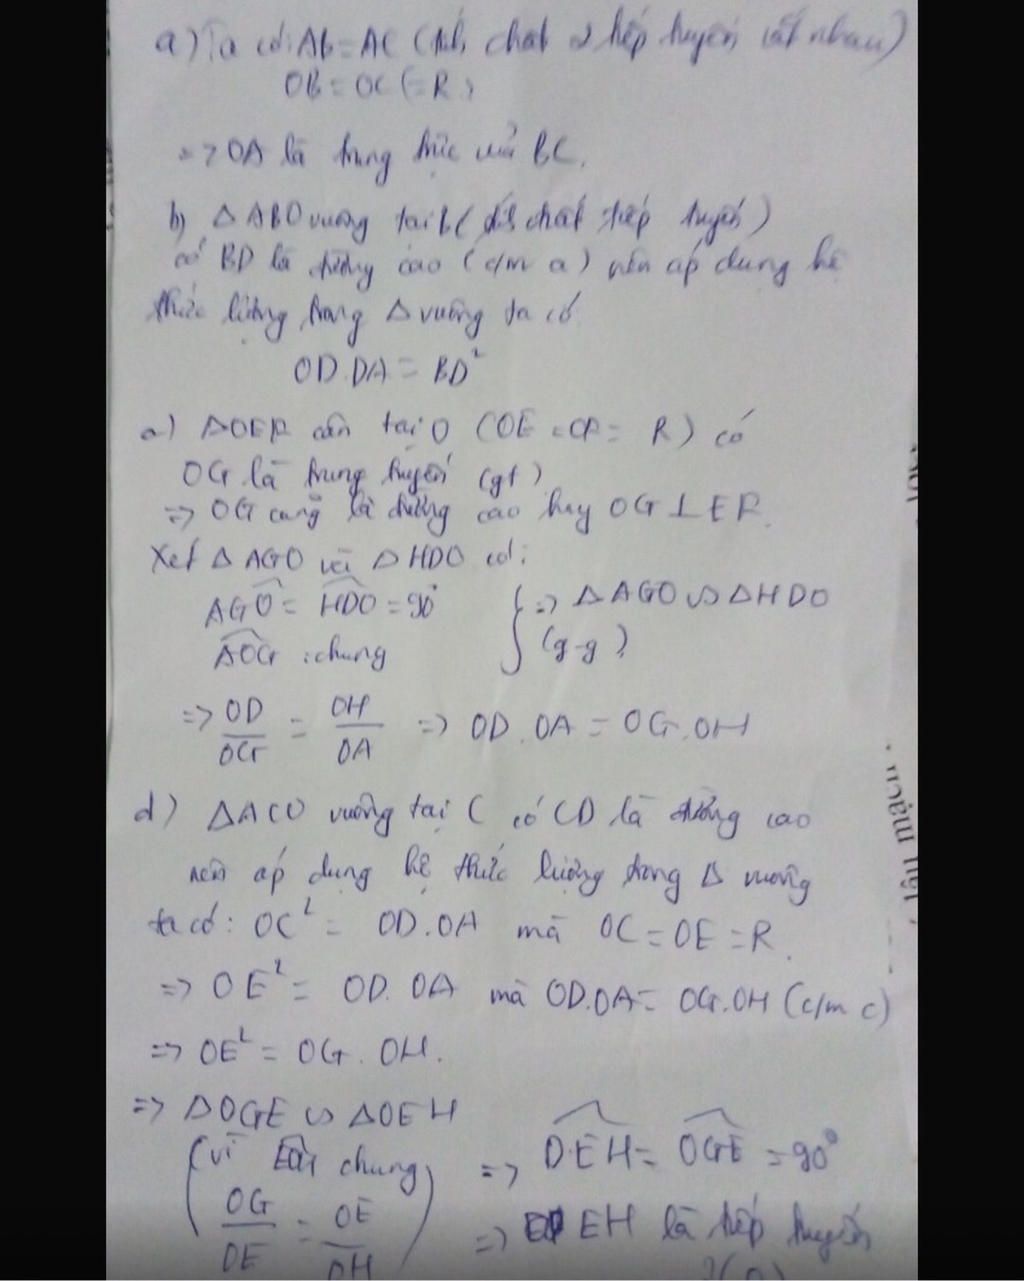 a) Ta có: AB = AC (tính chất 2 tiếp tuyến cắt nhau)
OB = OC (= R)
=> OA là trung trực của BC.
b) △ABO vuông tại B (tính chất tiếp tuyến)
có BD là đường cao (c/m a) nên áp dụng hệ
thức lượng trong △ vuông ta có
OD.DA = BD²
c) △OEF cân tại O (OE = OF = R) có
OG là trung tuyến (gt)
=> OG cũng là đường cao hay OG ⊥ EF.
Xét △AGO và △HDO có:
AGO = HDO = 90° } => △AGO ∽ △HDO
AOG : chung (g-g)
=> OD/OG = OH/OA => OD.OA = OG.OH
d) △ACO vuông tại C có CD là đường cao
nên áp dụng hệ thức lượng trong △ vuông
ta có: OC² = OD.OA mà OC = OE = R.
=> OE² = OD.OA mà OD.OA = OG.OH (c/m c)
=> OE² = OG.OH.
=> △OGE ∽ △OEH
(vì chung => OEH = OGE = 90°
OG/OE = OE/OH) => EH là tiếp tuyến
(O)
lậu mạch